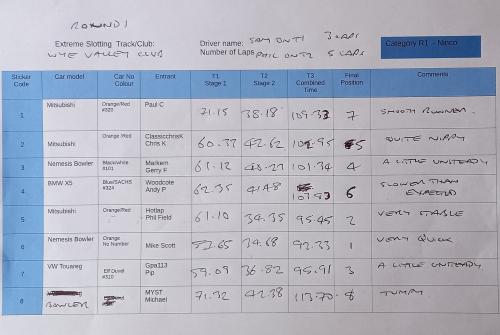 ROUND 1
Extreme Slotting Track/Club:
WYE VALLEY CLUB
Driver name: SAM ON T1 3 LAPS
Number of Laps PHIL ON T2 5 LAPS
Category R1 - Ninco
Sticker Code Car model Car No Colour Entrant T1 Stage 1 T2 Stage 2 T3 Combined Time Final Position Comments
1 Mitsubishi Orange/Red #320 Paul C 71.15 38.18 109.33 7 SMOOTH RUNNER
2 Mitsubishi Orange /Red ClassicchrisK Chris K 60.33 42.62 102.95 5 QUITE NIPPY
3 Nemesis Bowler Black/white #101 Markem Gerry F 61.12 101.34 4 A LITTLE UNSTEADY
4 BMW X5 Blue/SACHS #324 Woodcote Andy P 62.35 41.48 6 SLOWER THAN EXPECTED
5 Mitsubishi Orange/Red Hotlap Phil Field 61.10 34.35 95.45 2 VERY STABLE
6 Nemesis Bowler Orange No Number Mike Scott 34.68 92.33 1 VERY QUICK
7 VW Touareg Elf Duvel #310 Gpa113 Pip 59.09 36.82 95.91 3 A LITTLE UNSTEADY
8 BOWLER MYST Michael 71.32 42.38 113.70 8 TUMPY